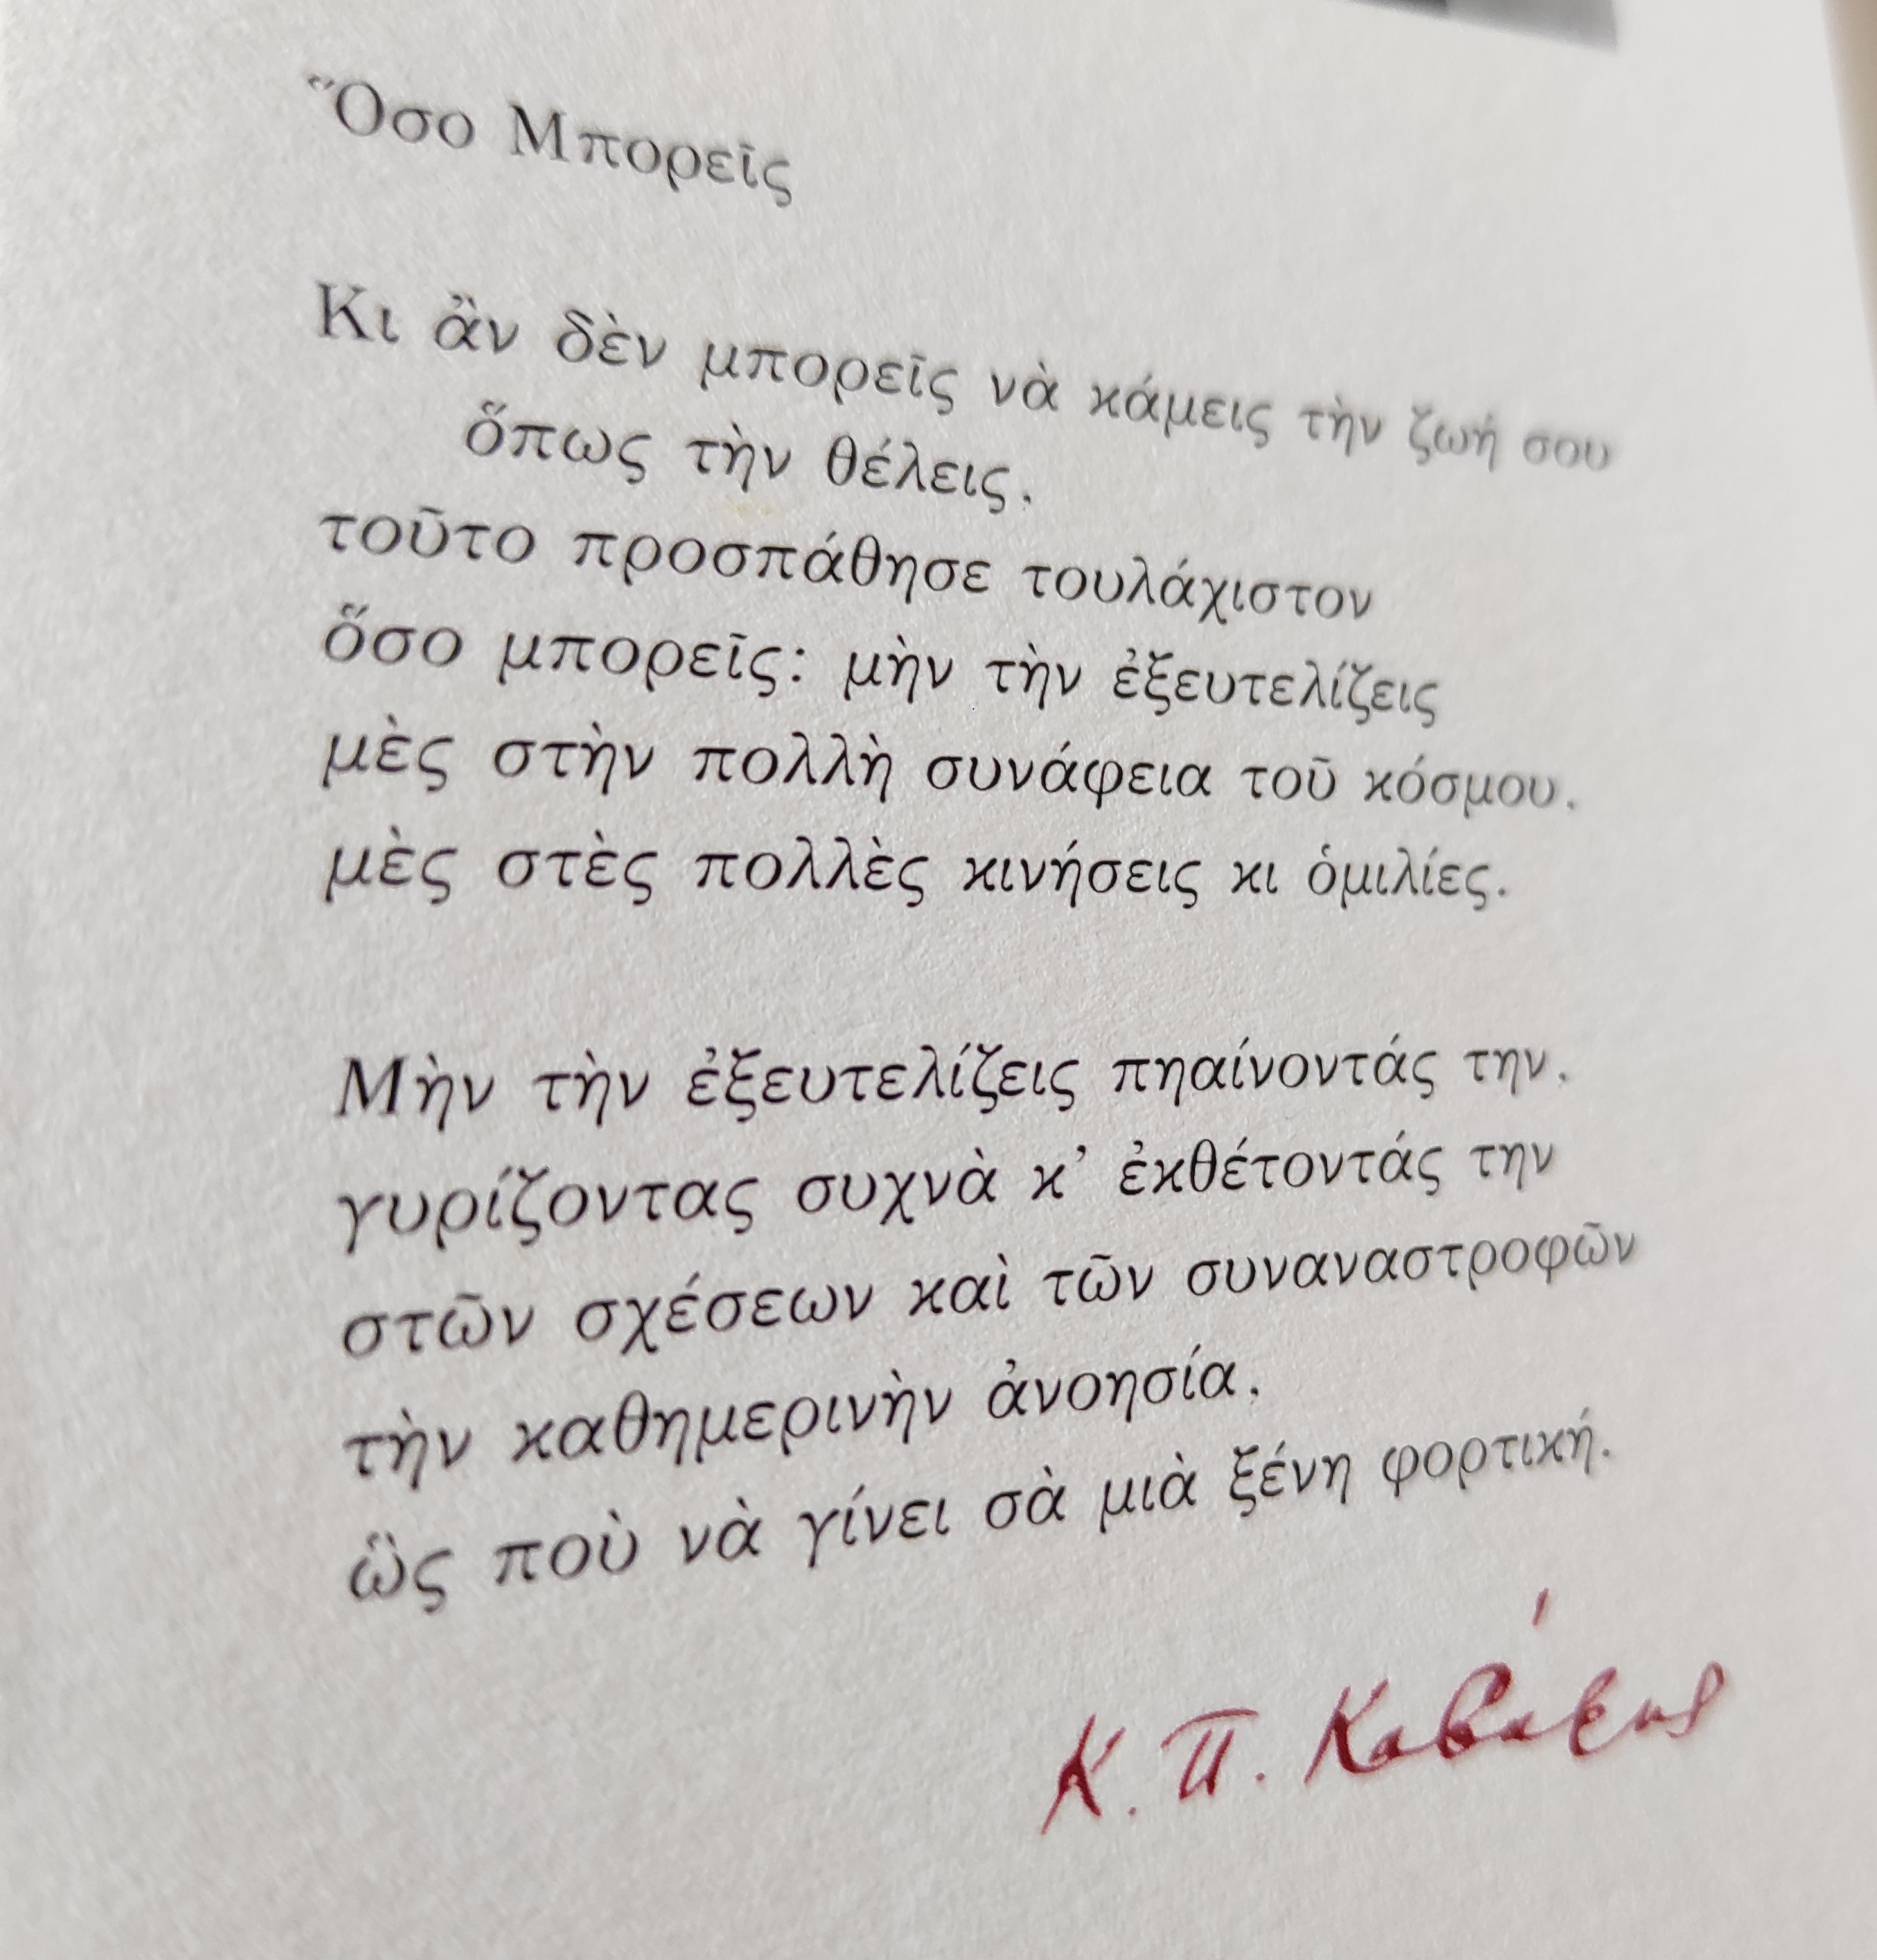 Ὅσο Μπορεῖς
Κι ἂν δὲν μπορεῖς νὰ κάμεις τὴν ζωή σου
ὅπως τὴν θέλεις.
τοῦτο προσπάθησε τουλάχιστον
ὅσο μπορεῖς: μὴν τὴν ἐξευτελίζεις
μὲς στὴν πολλὴ συνάφεια τοῦ κόσμου.
μὲς στὲς πολλὲς κινήσεις κι ὁμιλίες.
Μὴν τὴν ἐξευτελίζεις πηαίνοντάς την.
γυρίζοντας συχνὰ κ’ ἐκθέτοντάς την
στῶν σχέσεων καὶ τῶν συναναστροφῶν
τὴν καθημερινὴν ἀνοησία.
ὣς ποὺ νὰ γίνει σὰ μιὰ ξένη φορτική.
Κ. Π. Καβάφης